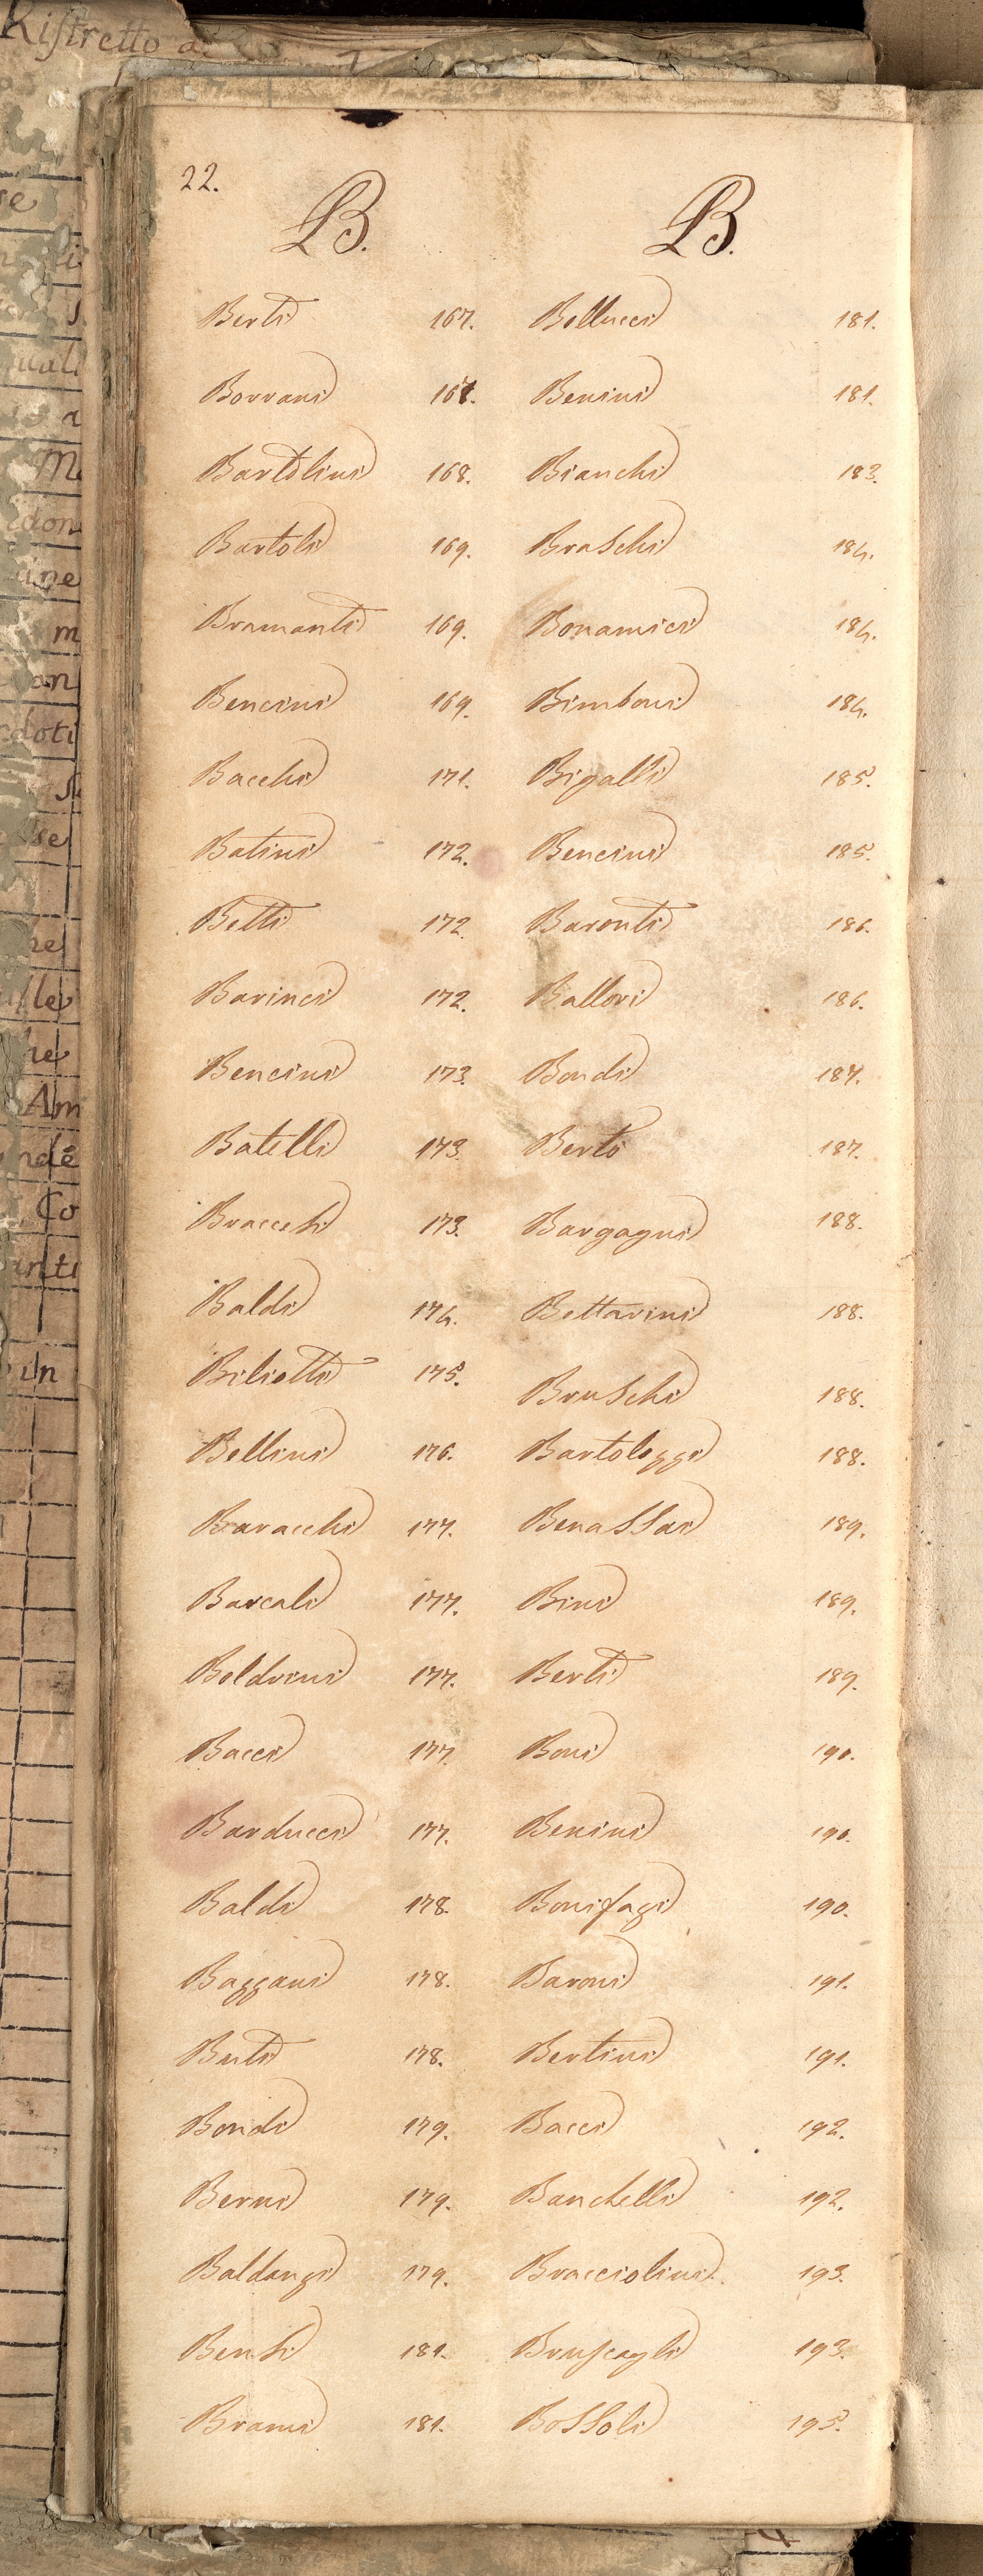 Ristretto
22.
B.
Berti 167.
Borrani 168.
Bartolini 168.
Bartoli 169.
Bramanti 169.
Bencini 169.
Bacchi 171.
Batini 172.
Betti 172.
Barinci 172.
Bencini 173.
Batelli 173.
Bracchi 173.
Baldi 174.
Bilietti 175.
Bellini 176.
Baracchi 177.
Barcali 177.
Boldrini 177.
Bacci 177.
Barducci 177.
Baldi 178.
Bazzani 178.
Buti 178.
Bondi 179.
Berni 179.
Baldanzi 179.
Bensi 181.
Brami 181.
B.
Bellucci 181.
Benini 181.
Bianchi 183.
Braschi 184.
Bonamici 184.
Bimboni 184.
Bigalli 185.
Bencini 185.
Baronti 186.
Ballori 186.
Bondi 187.
Berto 187.
Bargagni 188.
Bettarini 188.
Bruschi 188.
Bartolozzi 188.
Benassai 189.
Bini 189.
Berti 189.
Boni 190.
Benini 190.
Bonifazi 190.
Baroni 191.
Bertini 191.
Bacci 192.
Banchelli 192.
Bracciolini 193.
Bruscagli 193.
Bossoli 195.